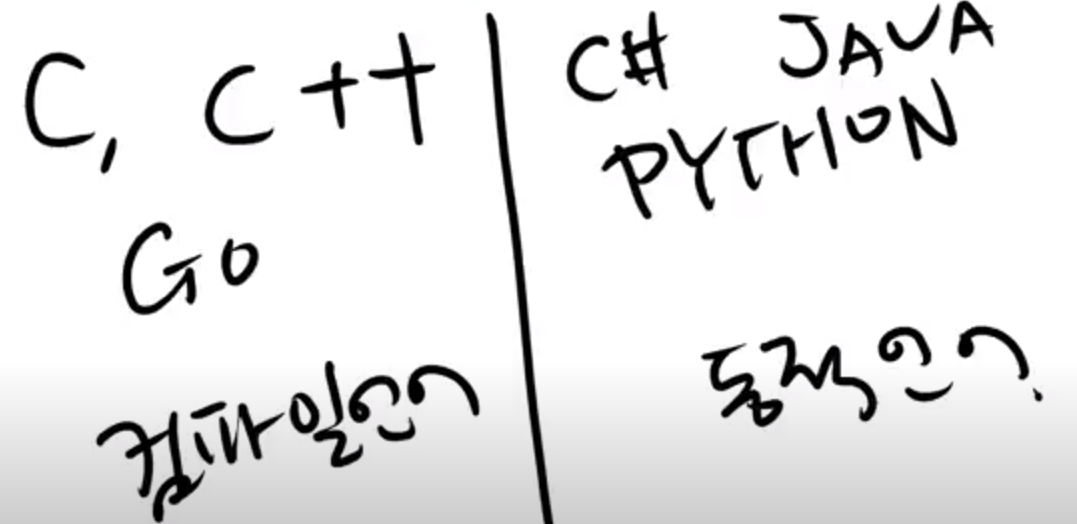 C, C++
Go
컴파일언어
C# JAVA
PYTHON
동적언어.